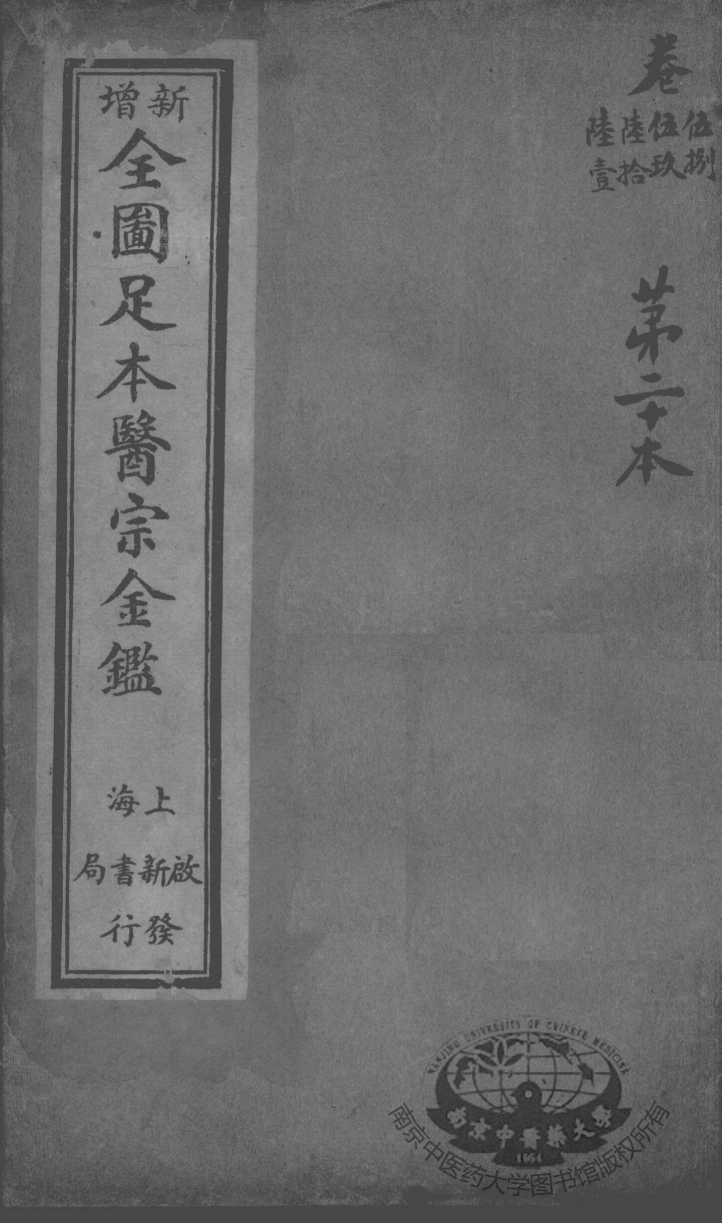 卷
伍捌
伍玖
陸拾
陸壹
苐二十本
新增
全圖足本醫宗金鑑
上海
啟新書局
發行
NANJING UNIVERSITY OF CHINESE MEDICINE
南京中醫藥大學
1954
南京中医药大学图书馆版权所有